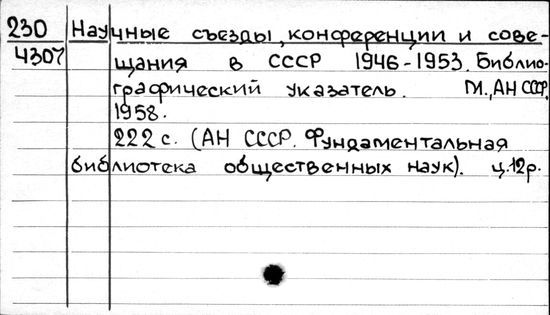 230 Научные съезды, конференции и сове-
4307 щания в СССР 1946-1953. Библио-
графический указатель. М., АН СССР,
1958.
222 с. (АН СССР. Фундаментальная
библиотека общественных наук). ц. 12 р.